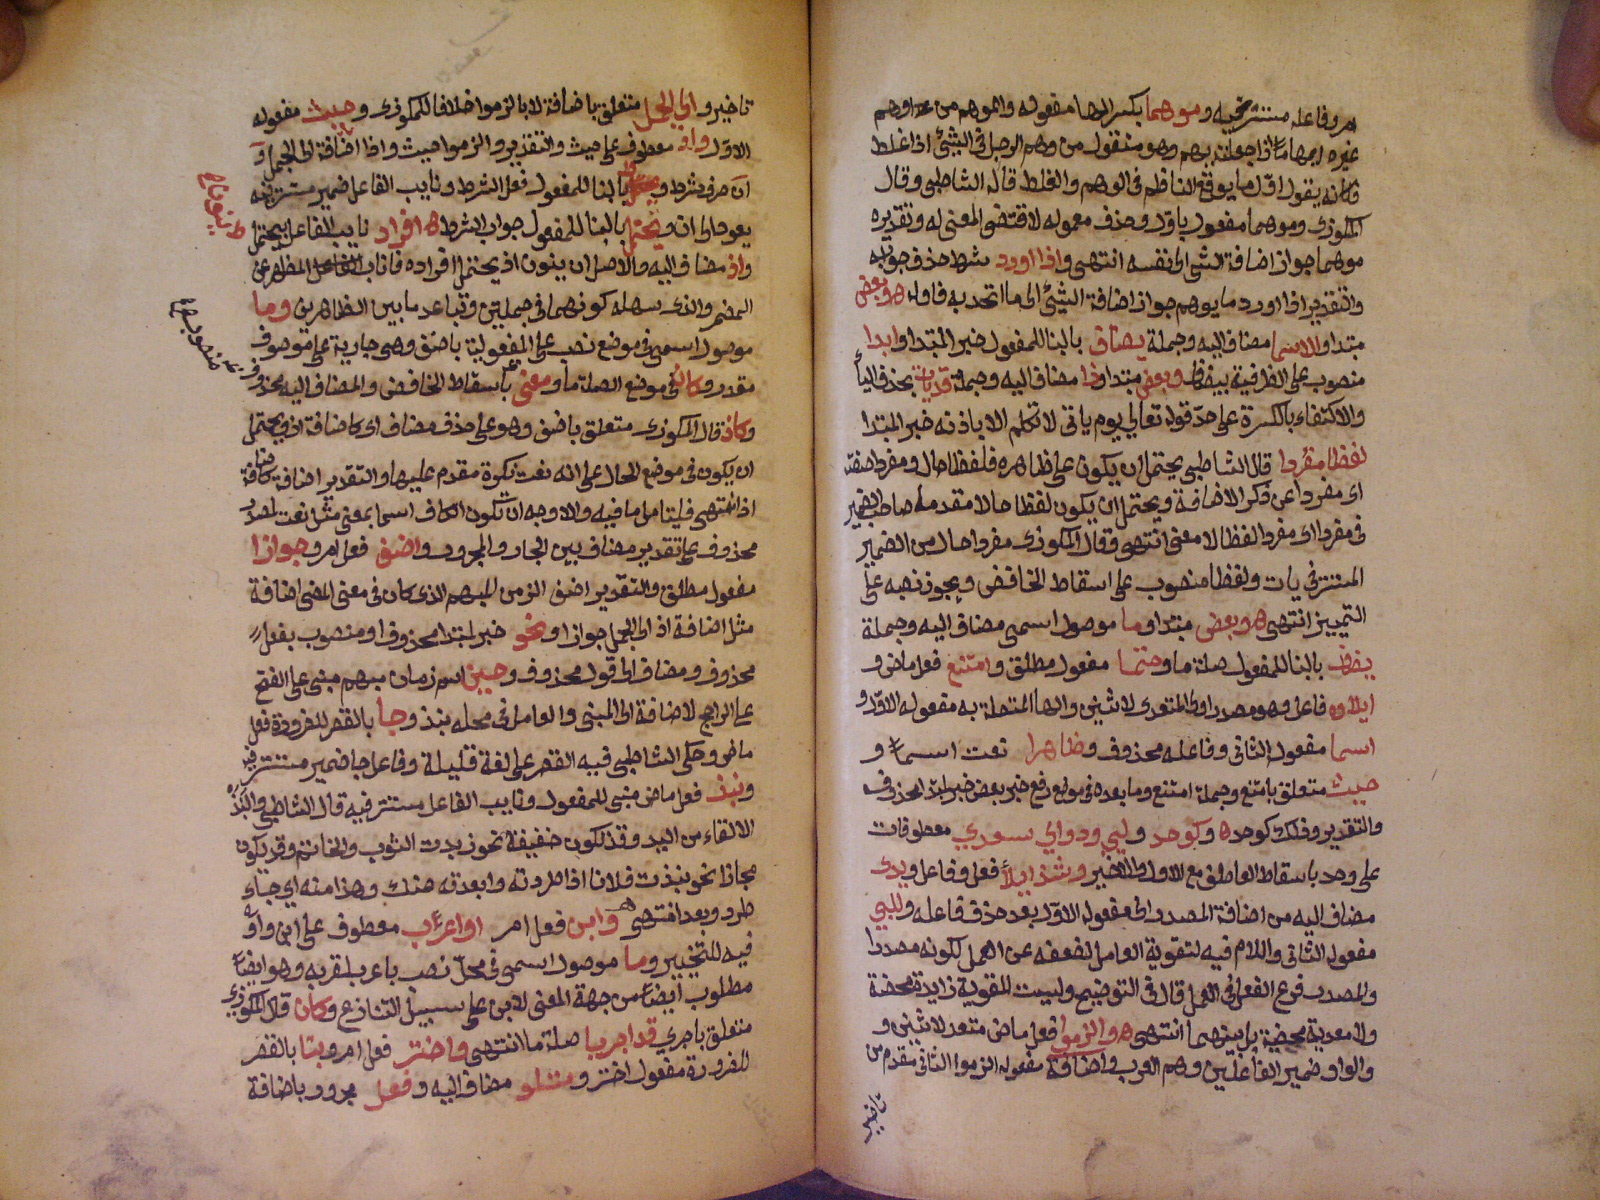 امر وفاعله مستتر فيه وموهما بكسر الها مفعوله والموهم من اوهم
غيره ايهاما اذا جعله يهم وهو منقول من وهم الرجل في الشيئ اذا غلط
فكانه يقول اول ما يوقع الناظر في الوهم والغلط قاله الشاطبي وقال
المكودي وموهما مفعول باول وحذف معموله لاقتضى المعنى له وتقديره
موهما جواز اضافة الشي الى نفسه انتهى واذا اورد شرط حذف جوابه
والتقدير اذا اورد ما يوهم جواز اضافة الشيئ الى ما اتحد به فاوله وبعض
مبتدا والاسما مضاف اليه وجملة يضاف بالبنا للمفعول خبر المبتدا وابدا
منصوب على الظرفية بيضاف وبعض مبتدا وذا مضاف اليه وجملة قد يات بحذف اليا
والاكتفاء بالكسرة على حد قوله تعالى يوم يات لا تكلم الا باذنه خبر المبتدا
لفظا مفردا قال الشاطبي يحتمل ان يكون على ظاهره فلفظا حال ومفردا صفته
اي مفردا عن ذكر الاضافة ويحتمل ان يكون لفظا حالا مقدمة صاحبها الضمير
في مفردا اي مفردا لفظا لا معنى انتهى وقال المكودي مفردا حال من الضمير
المستتر في يات ولفظا منصوب على اسقاط الخافض ويجوز نصبه على
التمييز انتهى وبعض مبتدا وما موصول اسمي مضاف اليه وجملة
يضاف بالبنا للمفعول صلة ما وحتما مفعول مطلق وامتنع فعل ماض و
ايلاوه فاعل وهو مصدر اولى المتعدى لاثنين والها المتصلة به مفعوله الاول و
اسما مفعول الثاني وفاعله محذوف وظاهرا نعت اسما و
حيث متعلق بامتنع وجملة امتنع وما بعده في موضع رفع خبر بعض خبر لمبتدا محذوف
والتقدير وذلك كوحده وكوحد ولبي ودوالي سعدي معطوفات
على وحد باسقاط العاطف مع الاول والاخير وشذ ايلا فعل وفاعل ويدى
مضاف اليه من اضافة المصدر الى مفعوله الاول بعد حذف فاعله وللبي
مفعول الثاني واللام فيه لتقوية العامل لضعفه عن العمل لكونه مصدرا
والمصدر فرع الفعل في العمل قال في التوضيح وليست المقوية زايدة محضة
ولا معدية محضة بل بينهما انتهى والزموا فعل ماض متعد لاثنين و
والواو ضمير الفاعلين وهم العرب واضافة مفعوله الزموا الثاني مقدم من
تاخير
تاخير والى الجمل متعلق باضافة لا بالزموا خلافا للمكودي وحيث مفعوله
الاول واذ معطوف على حيث والتقدير والزموا حيث واذا اضافة الى الجمل و
ان حرف شرط وينون بالبنا للمفعول فعل الشرط ونايب الفاعل ضمير مستتر فيه
يعود الى اذ ويحتمل بالبنا للمفعول جواب الشرط افراد نايب الفاعل بيحتمل
واذ مضاف اليه والاصل ان ينون اذ يحتمل افراده فاناب المظهر عن
المضمر والذي سهله كونهما في جملتين وتباعد ما بين الظاهرين وما
موصول اسمي في موضع نصب على المفعولية باضف وهي جارية على موصوف
مقدر وكاذ في موضع الصلة ما ومعنى باسقاط الخافض والمضاف اليه محذوف
وكاذ قال المكودي متعلق باضف وهو على حذف مضاف اي كاضافة اذ ويحتمل
ان يكون في موضع الحال على انه نعت نكرة مقدم عليها والتقدير اضافة كاضافة
اذ انتهى فليتامل ما فيه والاوجه ان تكون الكاف اسما بمعنى مثل نعت لمصدر
محذوف على تقدير مضاف بين الجار والمجرور واضف فعل امر وجوازا
مفعول مطلق والتقدير اضف الزمن المبهم الذي كان في معنى المضي اضافة
مثل اضافة اذ الى الجمل جوازا ونحو خبر لمبتدا محذوف او منصوب بفعل
محذوف ومضاف الى قول محذوف وحين اسم زمان مبهم مبني على الفتح
على الراجح لاضافة الى المبني والعامل في محله نبذ وجا بالقصر للضرورة فعل
ماض وحكى الشاطبي فيه القصر على لغة قليلة وفاعل جا ضمير مستتر فيه
ونبذ فعل ماض مبني للمفعول ونايب الفاعل مستتر فيه قال الشاطبي والنبذ
الالقاء من اليد وقد تكون حقيقة نحو نبذت الثوب والخاتم وقد يكون
مجازا نحو نبذت فلانا اذا طردته وابعدته عنك وهذا منه اي جاء
طرد وبعد انتهى وابن فعل امر او اعراب معطوف على ابن واو
فيه للتخيير وما موصول اسمي في محل نصب باعرب لقربه وهو ايضا
مطلوب ايضا من جهة المعنى لابن على سبيل التنازع وكاذ قال المكودي
متعلق باجري قد اجريا صلة ما انتهى واختر فعل امر وبنا بالقصر
للضرورة مفعول اختر ومتلو مضاف اليه وفعل مجرور باضافة